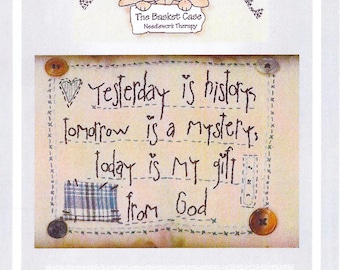 The Basket Case
Needlework Therapy
Yesterday is history,
tomorrow is a mystery,
today is my gift
from God